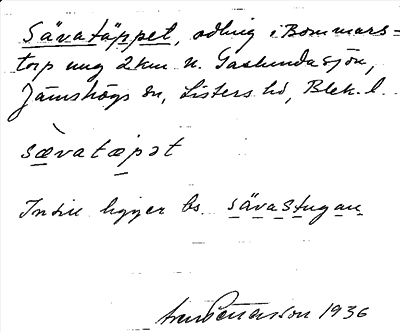 Sävatäppet, odling i Bommars=
torp ung 2 km n. Gaslundasjön,
Jämshögs sn, Listers hd, Blek. l.
sævatæpət
Intill ligger ls. sävastugan
1936